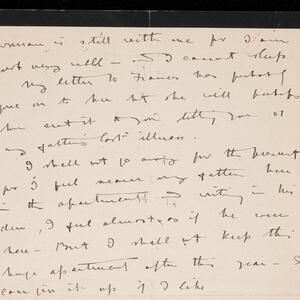 woman is still with me for I am
not very well — and I cannot sleep
My letter to Frances has probably
gone on to her but she will perhaps
have sent it to you telling you of
my father's last illness.
I shall not go away for the present
for I feel nearer my father here
in the apartment — and writing in his
den, I feel almost as if he were
here — But I shall not keep this
huge apartment after this year —
can give it up if I like